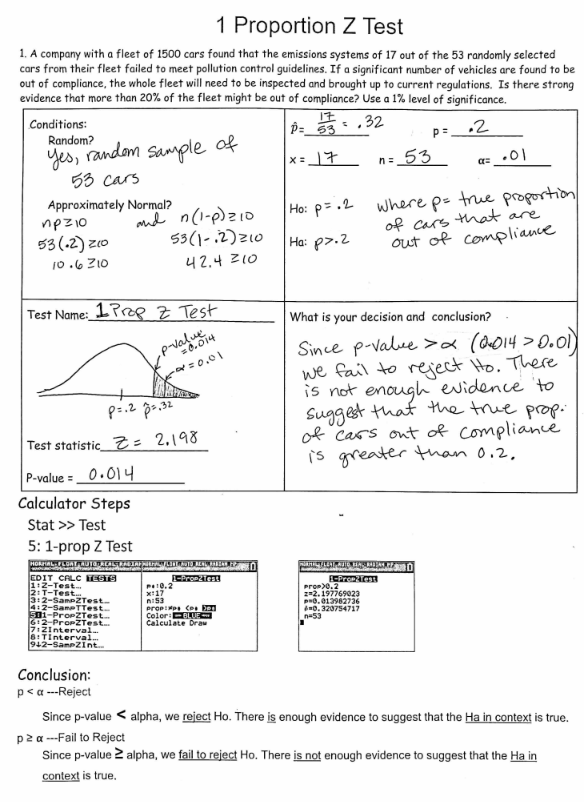 1 Proportion Z Test
1. A company with a fleet of 1500 cars found that the emissions systems of 17 out of the 53 randomly selected
cars from their fleet failed to meet pollution control guidelines. If a significant number of vehicles are found to be
out of compliance, the whole fleet will need to be inspected and brought up to current regulations. Is there strong
evidence that more than 20% of the fleet might be out of compliance? Use a 1% level of significance.
Conditions:
Random?
Yes, random sample of
53 cars
Approximately Normal?
np≥10 and n(1-p)≥10
53(.2)≥10 53(1-.2)≥10
10.6≥10 42.4≥10
p̂= 17/53 = .32 p = .2
x = 17 n = 53 α= .01
Ho: p=.2 where p= true proportion
of cars that are
Ha: p>.2 out of compliance
Test Name: 1 Prop Z Test
p-value
=0.014
α=0.01
p=.2 p̂=.32
Test statistic Z= 2.198
P-value = 0.014
What is your decision and conclusion?
Since p-value >α (0.014 > 0.01)
we fail to reject Ho. There
is not enough evidence to
suggest that the true prop.
of cars out of compliance
is greater than 0.2.
Calculator Steps
Stat >> Test
5: 1-prop Z Test
NORMAL FLOAT AUTO REAL RADIAN MP
EDIT CALC TESTS
1:Z-Test…
2:T-Test…
3:2-SampZTest…
4:2-SampTTest…
5:1-PropZTest…
6:2-PropZTest…
7:ZInterval…
8:TInterval…
9↓2-SampZInt…
NORMAL FLOAT AUTO REAL RADIAN MP
1-PropZTest
p₀:0.2
x:17
n:53
prop:≠p₀ <p₀ >p₀
Color: BLUE
Calculate Draw
NORMAL FLOAT AUTO REAL RADIAN MP
1-PropZTest
prop>0.2
z=2.197769023
p=0.013982736
p̂=0.320754717
n=53
Conclusion:
p < α ---Reject
Since p-value < alpha, we reject Ho. There is enough evidence to suggest that the Ha in context is true.
p ≥ α ---Fail to Reject
Since p-value ≥ alpha, we fail to reject Ho. There is not enough evidence to suggest that the Ha in
context is true.